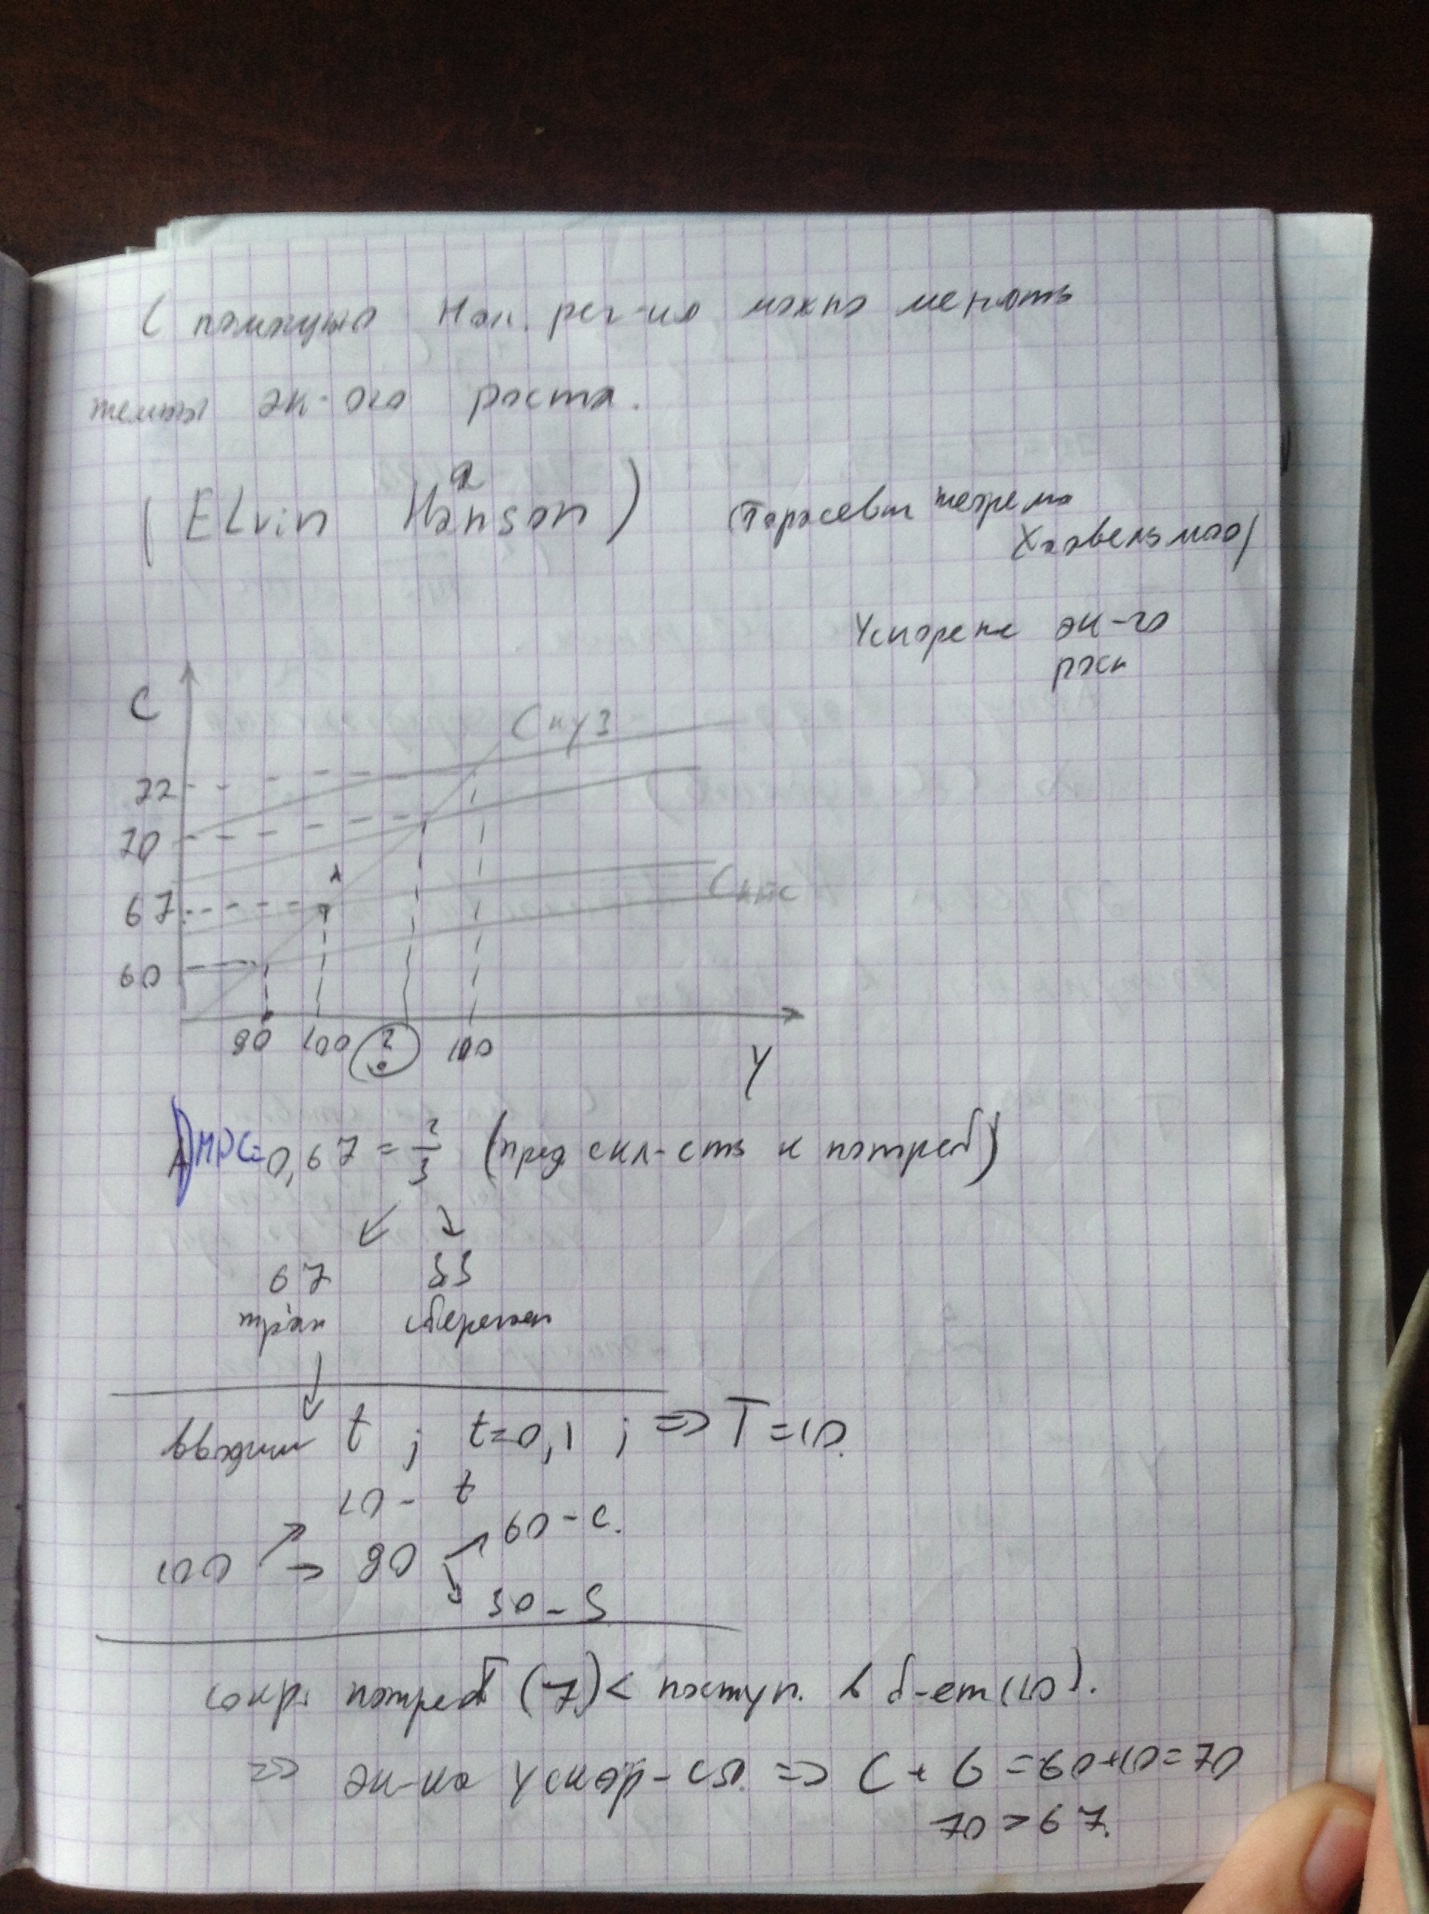 С помощью нал. рег-ия можно менять
темпы эк-ого роста.
a
(Elvin Hanson)
(Тарасевич теорема
Хаавельмао)
Ускорене эк-го
роск
C
72
70
67
60
90 100 ? 100
Y
MPC=0,67=2/3 (пред скл-сть к потреб)
67 33
сбережен
вводим t ; t=0,1 ; => T=10.
10 - t
100 90 60 - c.
30 - S
сокр. потреб (7) < поступ. в б-ет (10).
=> эк-ка ускор-ся. => C + G = 60+10=70
70 > 67.